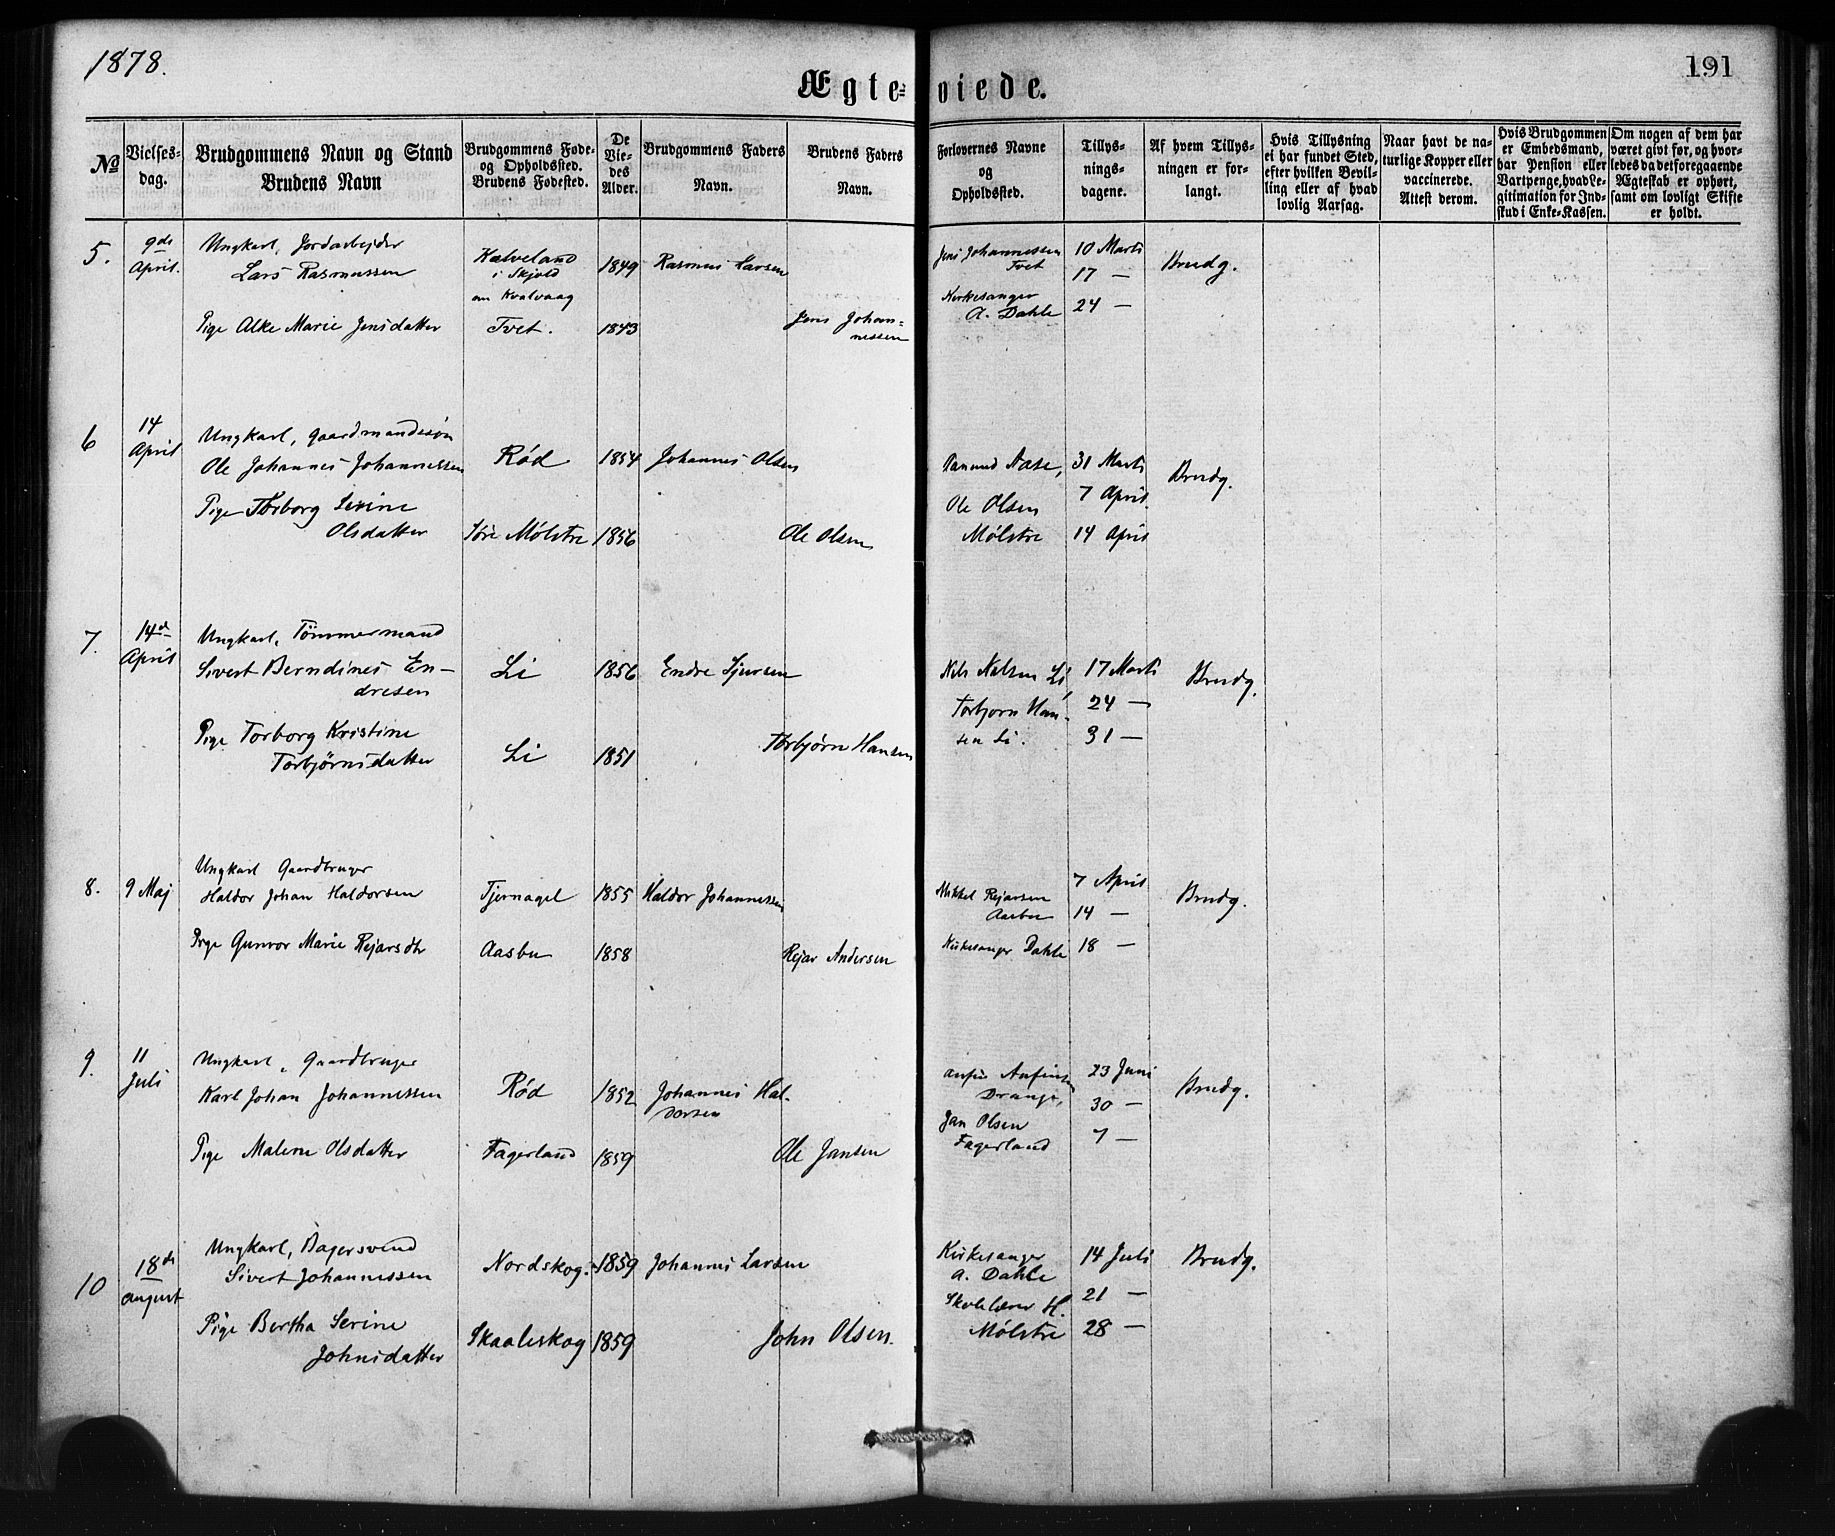 1878.
191
Ægte=
viede.
№
Vielses-
dag.
Brudgommens Navn og Stand
Brudens Navn
Brudgommens Føde-
og Opholdssted.
Brudens Fødested.
De
Vie-
des
Alder.
Brudgommens Faders
Navn.
Brudens Faders
Navn.
Forlovernes Navne
og
Opholdssted.
Tillys-
nings-
dagene.
Af hvem Tillys-
ningen er for-
langt.
Hvis Tillysning
ei har fundet Sted,
efter hvilken Bevil-
ling eller af hvad
lovlig Aarsag.
Naar havt de na-
turlige Kopper eller
vaccinerede.
Attest derom.
Hvis Brudgommen
er Embedsmand,
har Pension eller
Vartpenge, hvad Le-
gitimation for Ind-
skud i Enke-Kassen.
Om nogen af dem har
været givt før, og hvor-
ledes da det foregaaende
Ægteskab er ophørt,
samt om lovligt Skifte
er holdt.
5.
9de
April.
Ungkarl, Jordarbejder
Lars Rasmussen
Kalveland
i Skjold
Kvalvaag
1849
Rasmus Larsen
Pige Alke Marie Jensdatter
Tvet.
1843
Jens Johan=
nessen
Jens Johannessen
Tvet
Kirkesanger
A. Dahle
10 Marts
17 —
24 —
Brudg.
6
14
April
Ungkarl, Gaardmandssøn
Ole Johannes Johannessen
Rød
1854
Johannes Olsen
Pige Torborg Serine
Olsdatter
Søre Mølstre
1856
Ole Olsen
Aase,
Ole Olsen
Mølstre
31 Marts
7 April
14 April
Brudg.
7.
14d
April
Ungkarl, Tømmermand
Sivert Berndines En-
dresen
Li
1856
Endre Sjursen
Pige Torborg Kristine
Torbjørnsdatter
Li
1851
Torbjørn Hansen
Nils Nilsen Li
Torbjørn Han-
sen Li.
17 Marts
24 —
31 —
Brudg.
8.
9 Maj
Ungkarl Gaardbruger
Haldor Johan Haldorsen
Tjernagel
1855
Haldor Johannessen
Pige Gunvor Marie Rejarsdtr
Aasbu
1858
Rejar Andersen
Mikkel Rejarsen
Aasbu
Kirkesanger Dahle
7 April
14 —
18 —
Brudg.
9.
11
Juli
Ungkarl, Gaardbruger
Karl Johan Johannessen
Rød
1852
Johannes Hal-
dorsen
Pige Malene Olsdatter
Fagerland
1859
Ole Jansen
Anfin Anfinsen
Drange,
Jan Olsen
Fagerland
23 Juni
30 —
7 —
Brudg.
10
18de
August
Ungkarl, Bagersvend
Sivert Johannessen
Nordskog.
1859
Johannes Larsen
Pige Bertha Serine
Johnsdatter
Skaaleskog
1859
John Olsen.
Kirkesanger
A. Dahle
Skolelærer H.
Mølstre
14 Juli
21 —
28 —
Brudg.